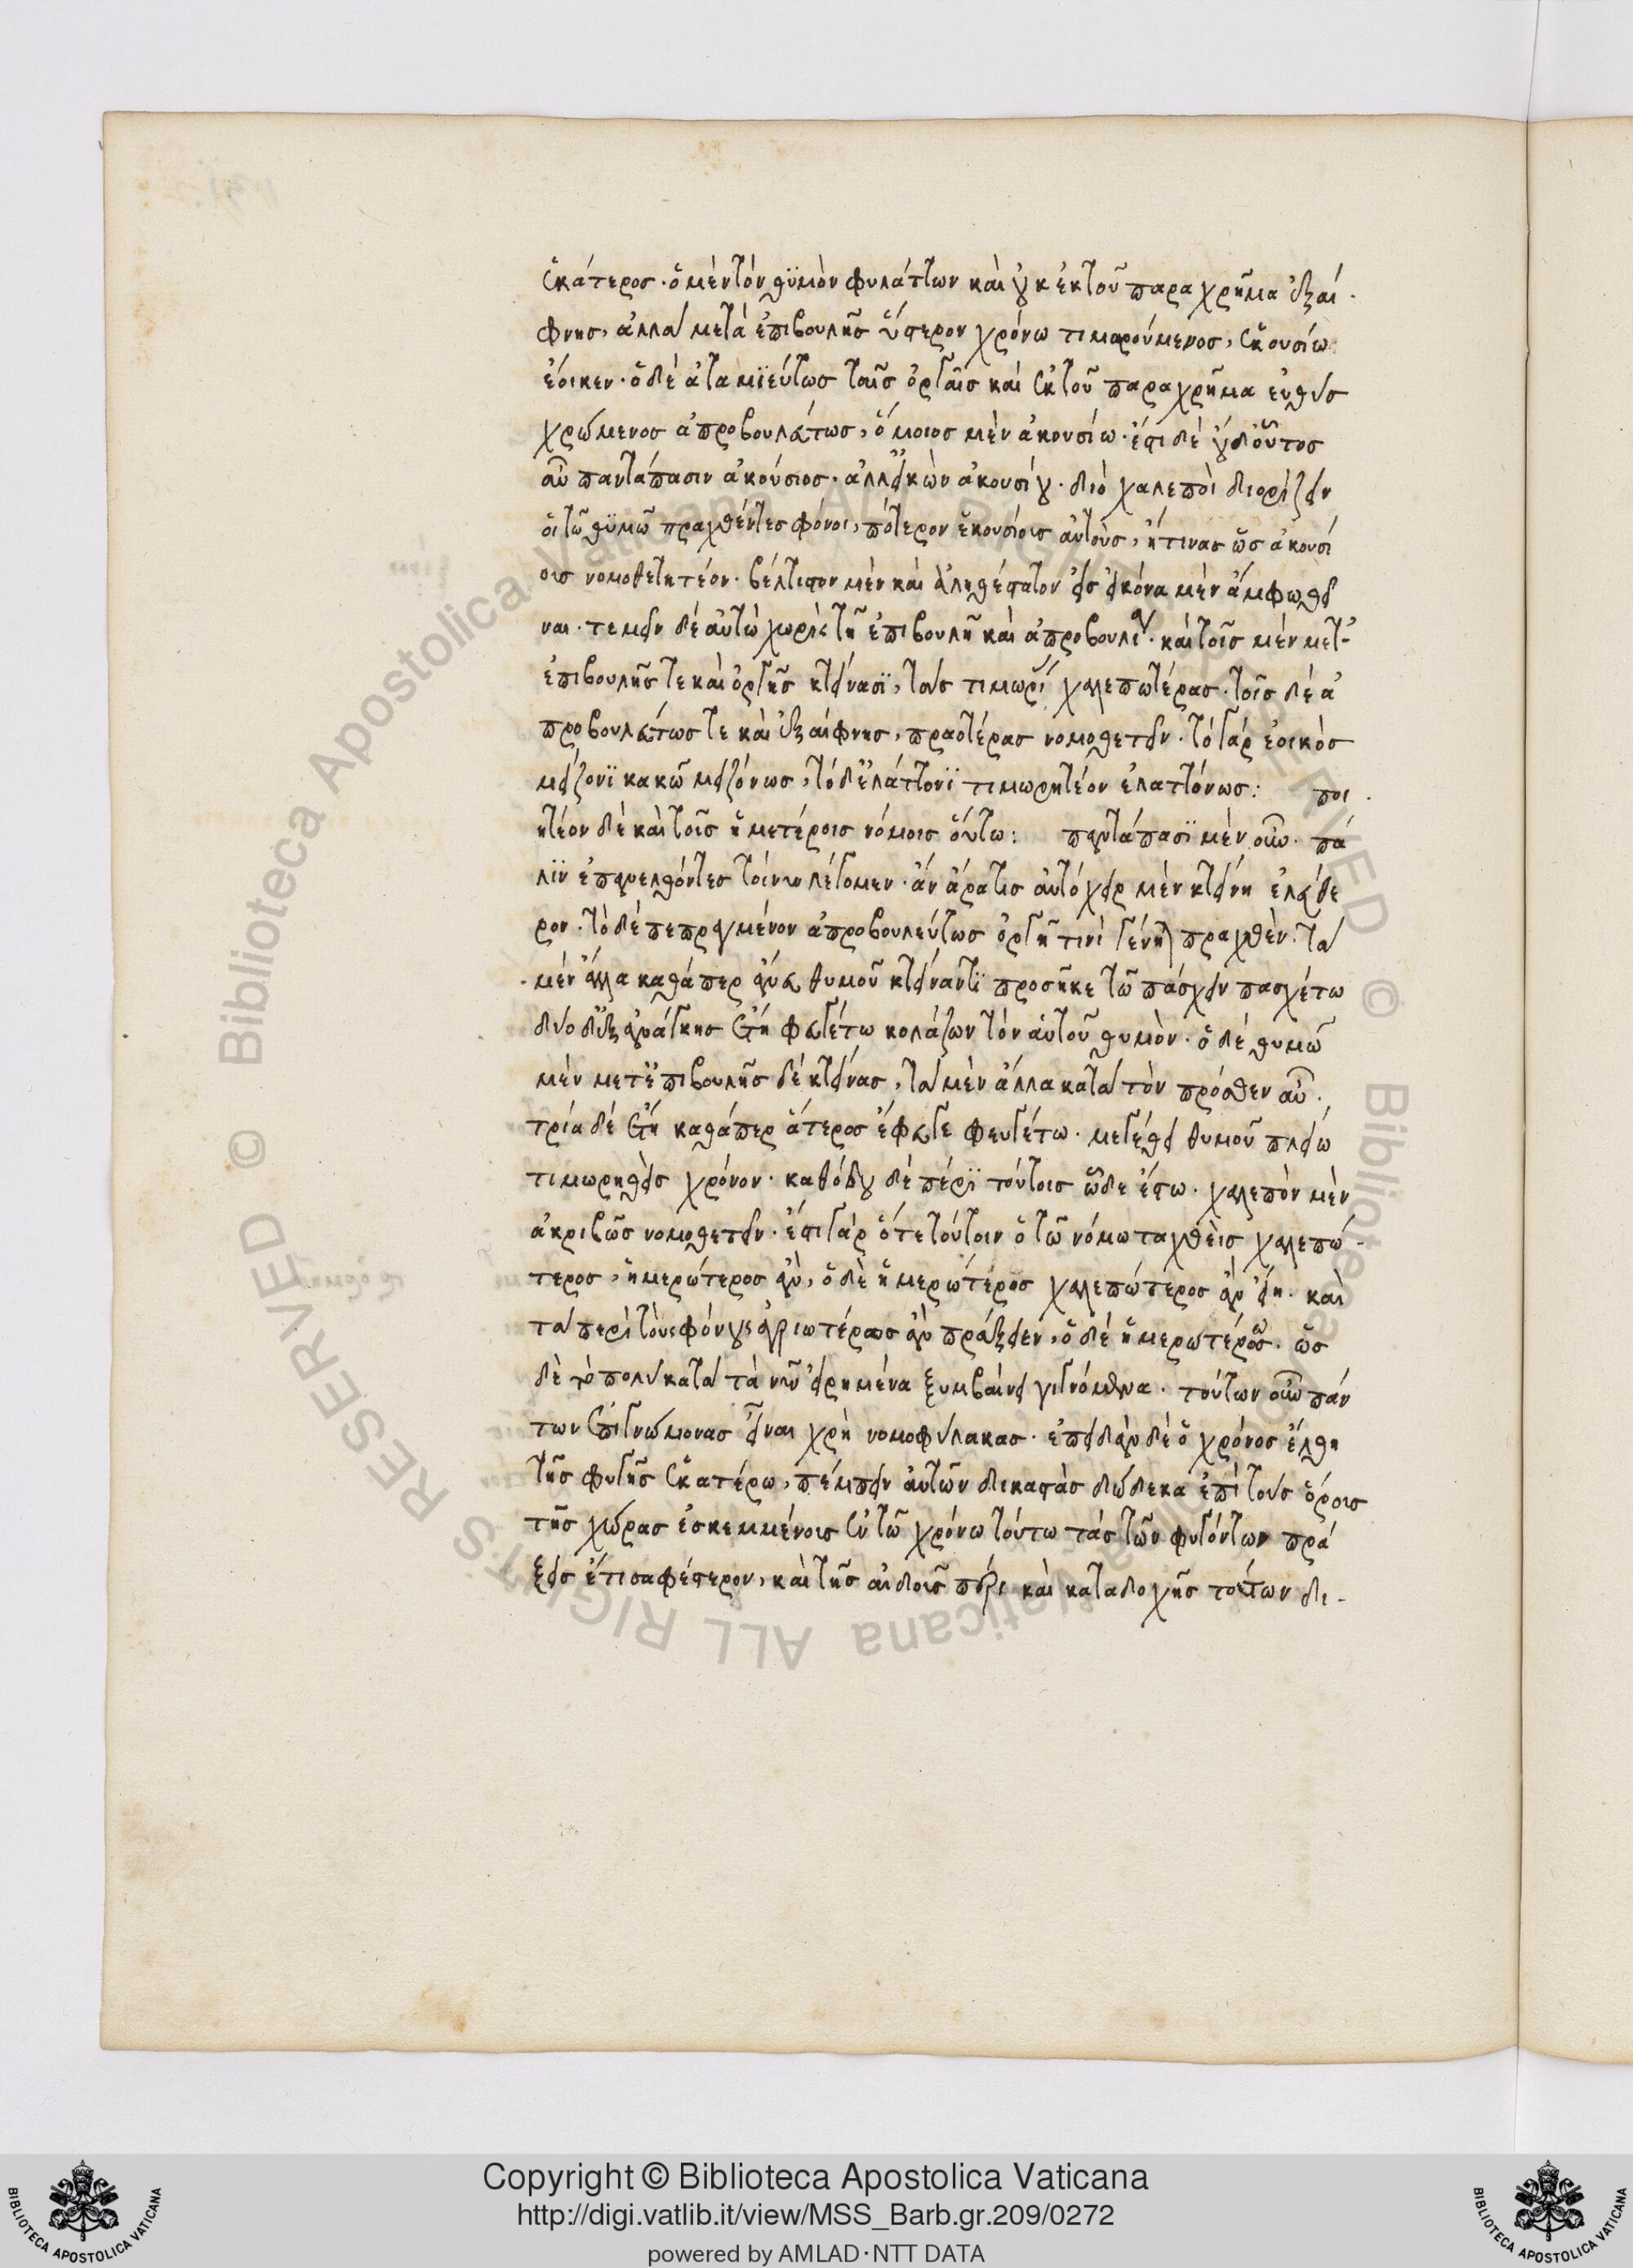 ἑκάτερος· ὁ μὲν τὸν θϋμὸν φυλάττων καὶ οὐκ ἐκ τοῦ παραχρῆμα ἐξαί
φνης, ἀλλὰ μετὰ ἐπιβουλῆς ὕστερον χρόνω τιμωρούμενος, ἑκουσίω
ἔοικεν· ὁ δὲ ἀταμϊεύτως ταῖς ὀργαῖς καὶ ἐκ τοῦ παραχρῆμα εὐθὺς
χρώμενος ἀπροβουλεύτως, ὅμοιος μὲν ἀκουσίω· ἔστι δὲ οὐδ' οὗτος
αὖ παντάπασιν ἀκούσιος· ἀλλ' εἰκὼν ἀκουσίου· διὸ χαλεποὶ διορίζειν
οἱ τῶ θϋμῶ πραχθέντες φόνοι, πότερον ἑκουσίοις αὐτοὺς, ἤ τινας ὡς ἀκουσί
οις νομοθετητέον· βέλτιστον μὲν καὶ ἀληθέστατον εἰς εἰκόνα μὲν ἄμφω θεῖ
ναι· τεμεῖν δὲ αὐτὼ χωρὶς τῆ ἐπιβουλῆ καὶ ἀπροβουλία· καὶ τοῖς μὲν μετ'
ἐπιβουλῆς τε καὶ ὀργῆς κτείνασϊ, τὰς τιμωρί χαλεπωτέρας· τοῖς δὲ ἀ
προβουλεύτως τε καὶ ἐξαίφνης, πραοτέρας νομοθετεῖν· τὸ γὰρ ἐοικὸς
μείζονϊ κακῶ μειζόνως, τὸ δ' ἐλάττονϊ τιμωρητέον ἐλαττόνως: ποι
ητέον δὲ καὶ τοῖς ἡμετέροις νόμοις οὕτω: παντάπασϊ μὲν οὖν· πά
λϊν ἐπανελθόντες τοίνυν λέγομεν· ἂν ἄρα τις αὐτόχειρ μὲν κτείνη ἐλεύθε
ρον· τὸ δὲ πεπραγμένον ἀπροβουλεύτως ὀργῆ τινὶ γένηται πραχθὲν· τὰ
μὲν ἄλλα καθάπερ ἄνευ θυμοῦ κτείναντϊ προσῆκε τῶ πάσχειν πασχέτω
δύο δ' ἐξ ἀνάγκης ἔτη φευγέτω κολάζων τὸν αὐτοῦ θυμὸν· ὁ δὲ θυμῶ
μὲν μετ' ἐπιβουλῆς δὲ κτείνας, τὰ μὲν ἄλλα κατὰ τὸν πρόσθεν αὖ·
τρία δὲ ἔτη καθάπερ ἅτερος ἔφευγε φευγέτω· μεγέθει θυμοῦ πλείω
τιμωρηθεὶς χρόνον· καθόδου δὲ πέρϊ τούτοις ὧδε ἔστω· χαλεπὸν μὲν
ἀκριβῶς νομοθετεῖν· ἔστι γὰρ ὅτε τούτοιν ὁ τῶ νόμω ταχθεὶς χαλεπώ
τερος, ἡμερώτερος ἂν, ὁ δὲ ἡμερώτερος χαλεπώτερος ἂν εἴη· καὶ
τὰ περὶ τὸν φόνον ἀγριωτέρως ἂν πράξειεν, ὁ δὲ ἡμερωτέρως· ὡς
δὲ τὸ πολὺ κατὰ τὰ νῦν εἰρημένα ξυμβαίνει γιγνόμενα· τούτων οὖν πάν
των ἐπιγνώμονας εἶναι χρὴ νομοφύλακας· ἐπειδὰν δὲ ὁ χρόνος ἔλθη
τῆς φυγῆς ἑκατέρω, πέμπειν αὐτῶν δικαστὰς δώδεκα ἐπὶ τοὺς ὅροις
τῆς χώρας ἐσκεμμένοις ἐν τῶ χρόνω τούτω τὰς τῶν φυγόντων πρά
ξεις ἔτι σαφέστερον, καὶ τῆς αἰδοῖς πέρι καὶ καταδοχῆς τούτων δι-
Copyright © Biblioteca Apostolica Vaticana
http://digi.vatlib.it/view/MSS_Barb.gr.209/0272
powered by AMLAD·NTT DATA